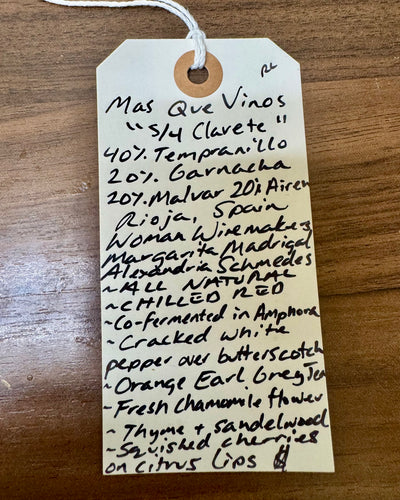 RL
Mas Que Vinos
"S/4 Clarete"
40% Tempranillo
20% Garnacha
20% Malvar 20% Airen
Rioja, Spain
Woman Winemakers
Margarita Madrigal
Alexandria Schmedes
~ ALL NATURAL
~ CHILLED RED
~ Co-fermented in Amphora
~ Cracked white
pepper over butterscotch
~ Orange Earl Grey Tea
~ Fresh Chamomile flower
~ Thyme + sandelwood
~ Squished cherries
on citrus lips